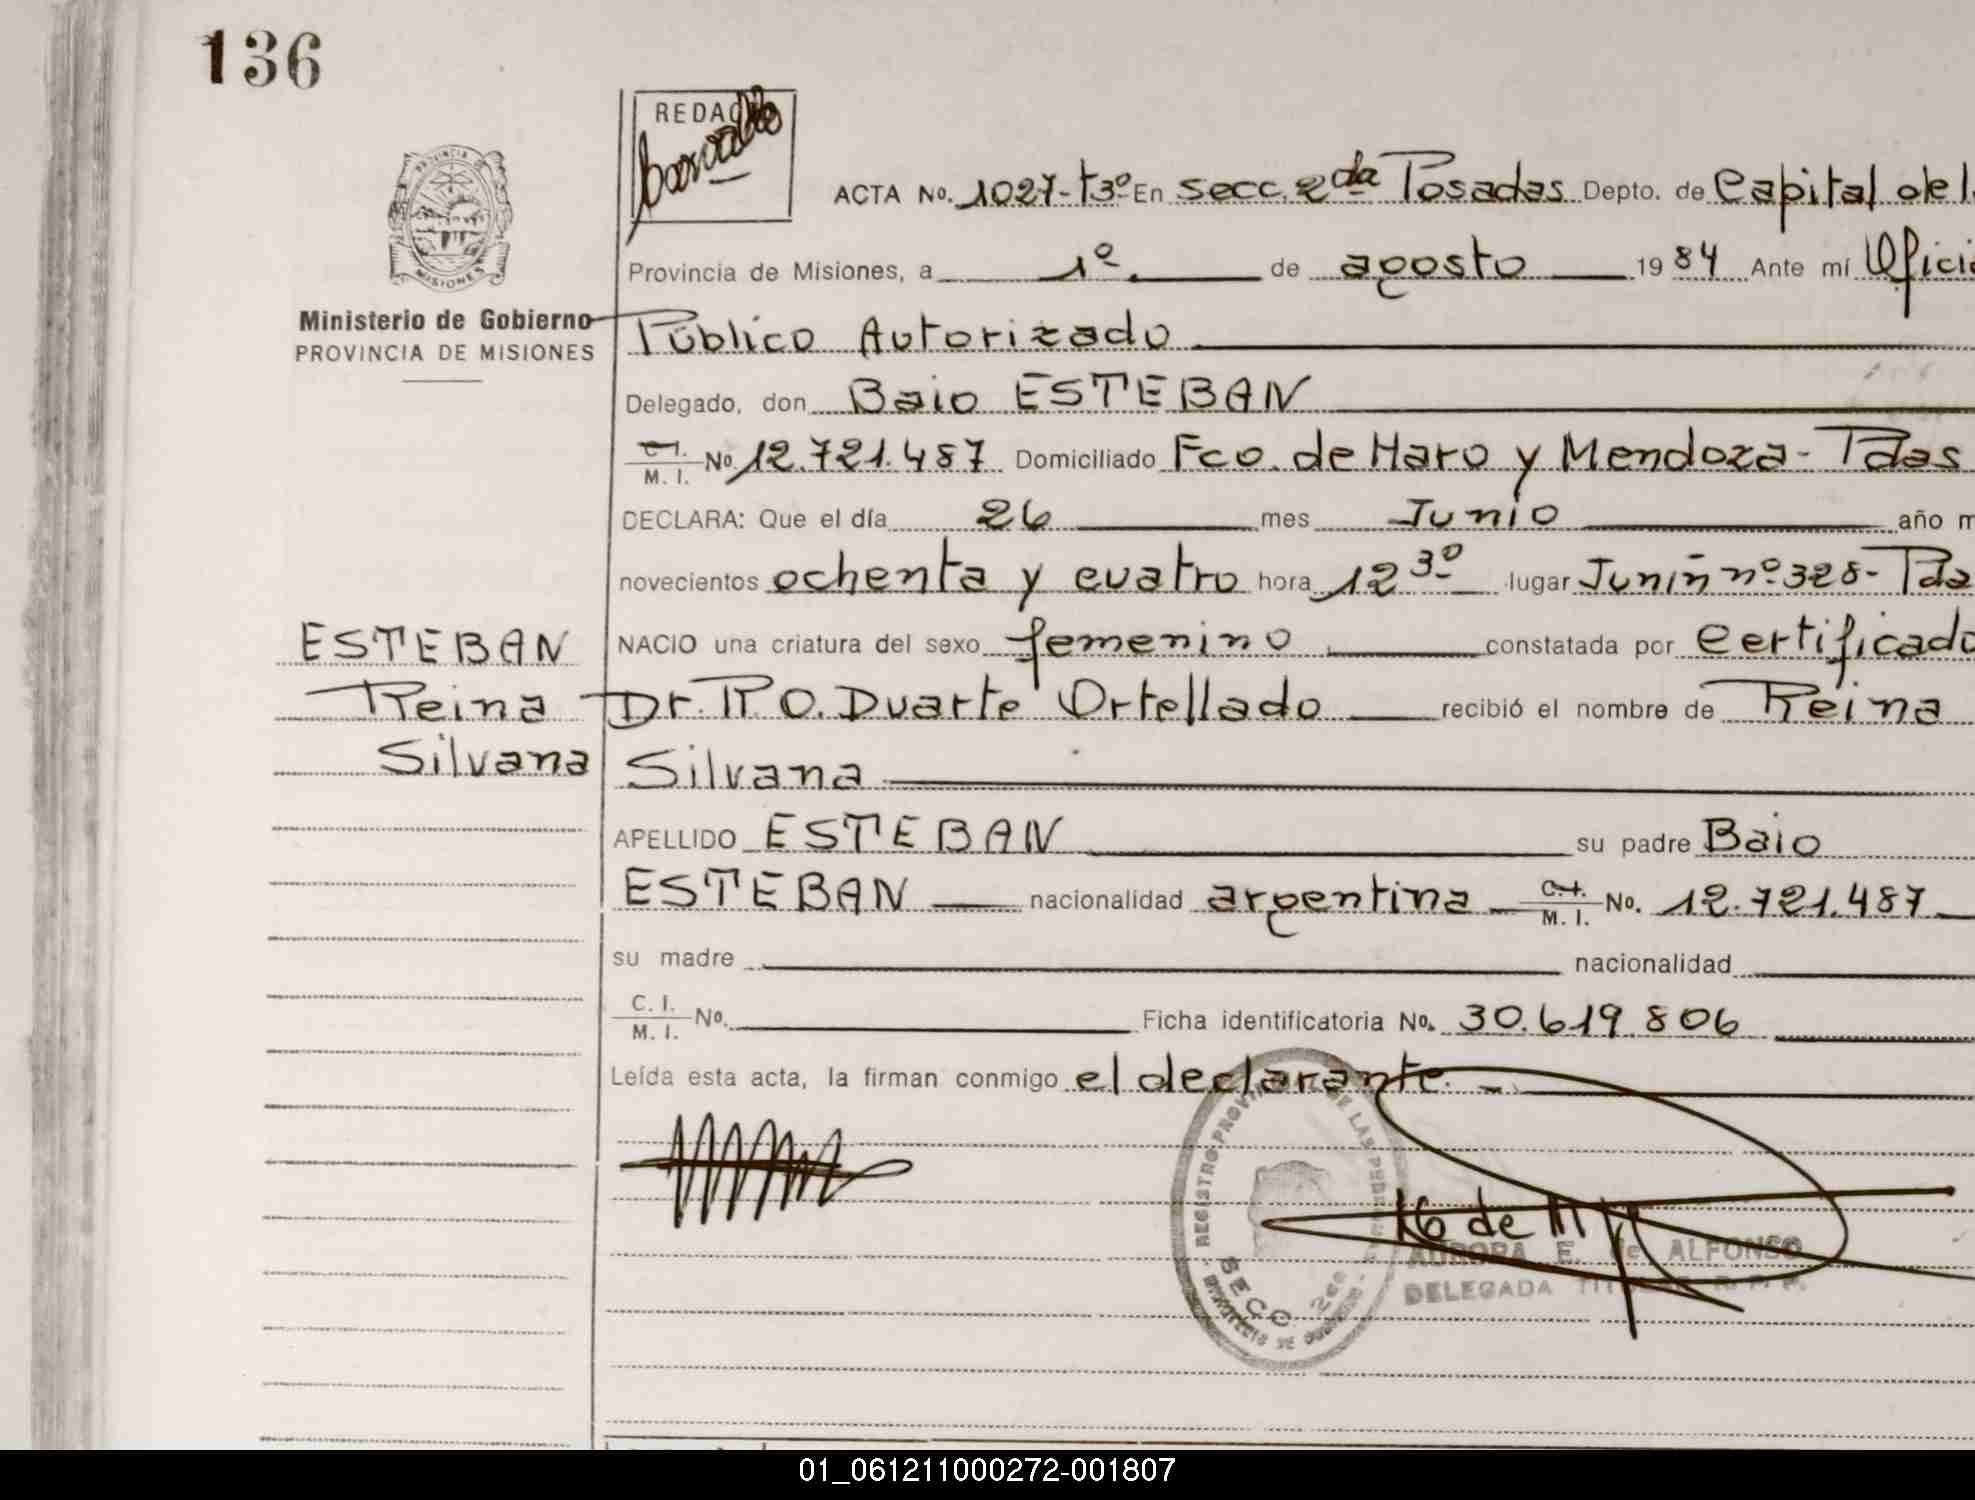 136
REDAC
ACTA No. 1027-t3º En secc. 2da Posadas Depto. de Capital de l
Provincia de Misiones, a 1º de agosto 1984 Ante mí Ofici
Ministerio de Gobierno
PROVINCIA DE MISIONES
Público Autorizado
Delegado, don Baio ESTEBAN
C.I. M. I. No. 12.721.487 Domiciliado Fco. de Haro y Mendoza - Pdas
DECLARA: Que el día 26 mes Junio año m
novecientos ochenta y cuatro hora 12 30 lugar Junín nº 328 - Pda
ESTEBAN NACIO una criatura del sexo femenino constatada por certificado
Reina Dr. R. O. Duarte Ortellado recibió el nombre de Reina
Silvana Silvana
APELLIDO ESTEBAN su padre Baio
ESTEBAN nacionalidad argentina C.I. M. I. No. 12.721.487
su madre nacionalidad
C. I. M. I. No. Ficha identificatoria No. 30.619.806
Leída esta acta, la firman conmigo el declarante. -
REGISTRO PROVINCIAL DE LAS PERSONAS
SECC. 2da
MINISTERIO DE GOBIERNO
AURORA E. de ALFONSO
DELEGADA TITULAR R. P. P.
01_061211000272-001807